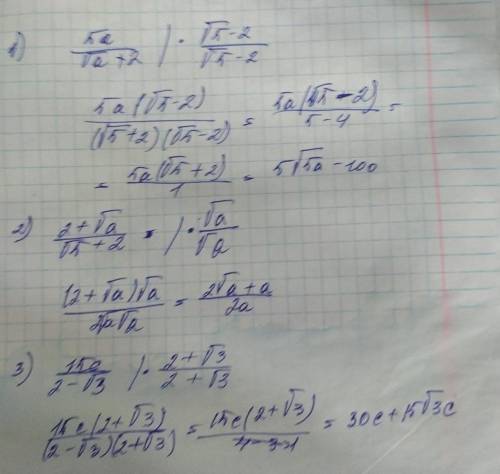 1) 5a/(√a+2) | · (√5-2)/(√5-2)
5a(√5-2)/((√5+2)(√5-2)) = 5a(√5-2)/(5-4) =
= 5a(√5+2)/1 = 5√5a - 100
2) (2+√a)/(√5+2) = | · √a/√a
(2+√a)√a/(2a√a) = (2√a+a)/2a
3) 15c/(2-√3) | · (2+√3)/(2+√3)
15c(2+√3)/((2-√3)(2+√3)) = 15c(2+√3)/(4-3) = 30c+15√3c